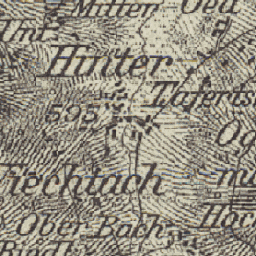 Mitter Oed
Unt.
Hinter
Tafert
595
Og
Fiechtach
mü
Ober Bach
Hoc